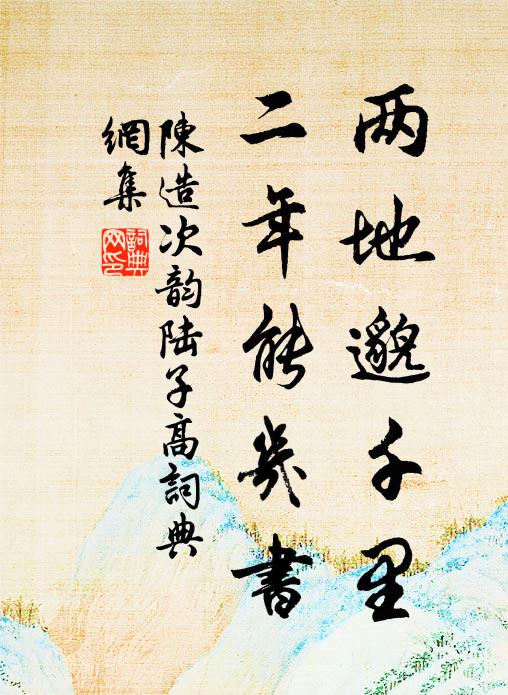 两地邈千里
二年能幾書
陳造次韵陆子高詞典
網集
詞典
网印